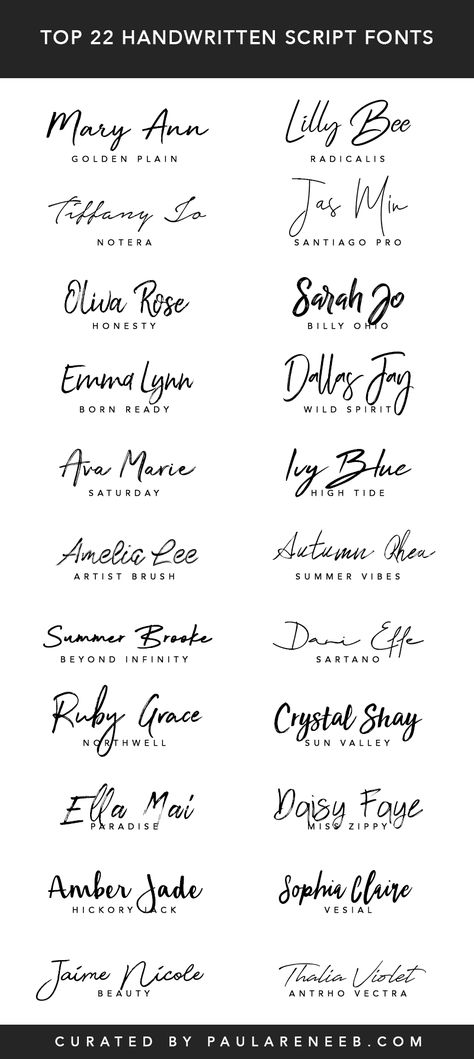 TOP 22 HANDWRITTEN SCRIPT FONTS
Mary Ann
GOLDEN PLAIN
Lilly Bee
RADICALIS
Tiffany Jo
NOTERA
Jas Min
SANTIAGO PRO
Oliva Rose
HONESTY
Sarah Jo
BILLY OHIO
Emma Lynn
BORN READY
Dallas Jay
WILD SPIRIT
Ava Marie
SATURDAY
Ivy Blue
HIGH TIDE
Amelia Lee
ARTIST BRUSH
Autumn Rhea
SUMMER VIBES
Summer Brooke
BEYOND INFINITY
Dani Elle
SARTANO
Ruby Grace
NORTHWELL
Crystal Shay
SUN VALLEY
Ella Mai
PARADISE
Daisy Faye
MISS ZIPPY
Amber Jade
HICKORY JACK
Sophia Claire
VESIAL
Jaime Nicole
BEAUTY
Thalia Violet
ANTRHO VECTRA
CURATED BY PAULARENEEB.COM